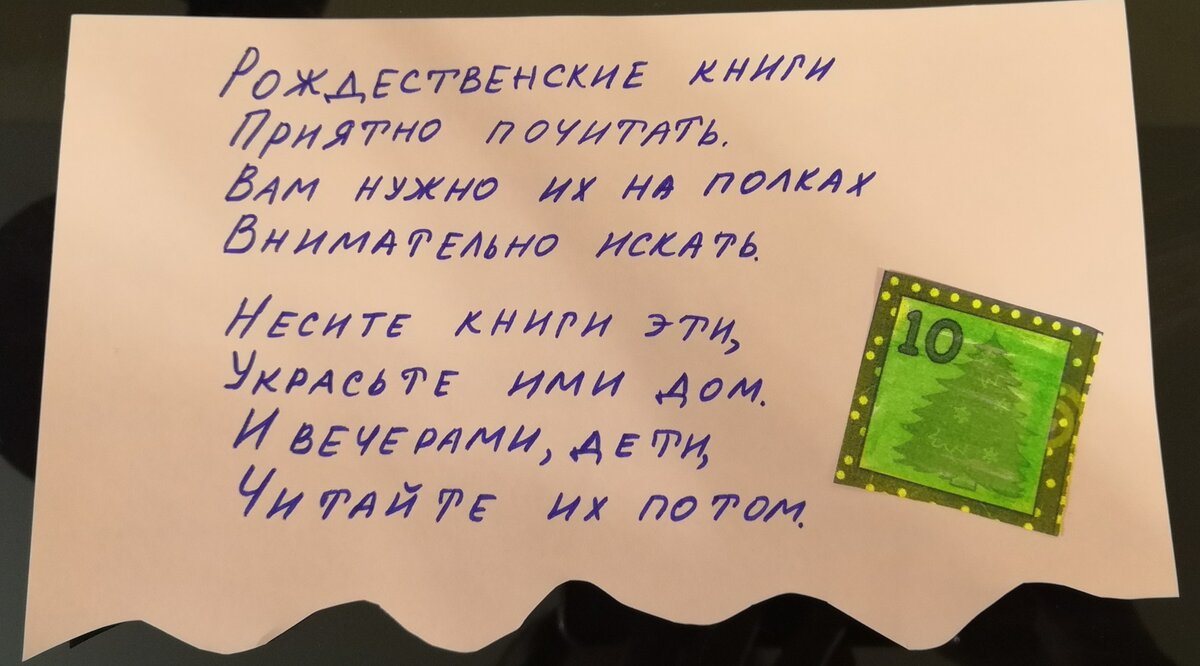 Рождественские книги
Приятно почитать.
Вам нужно их на полках
Внимательно искать.
Несите книги эти,
Украсьте ими дом.
И вечерами, дети,
Читайте их потом.
10